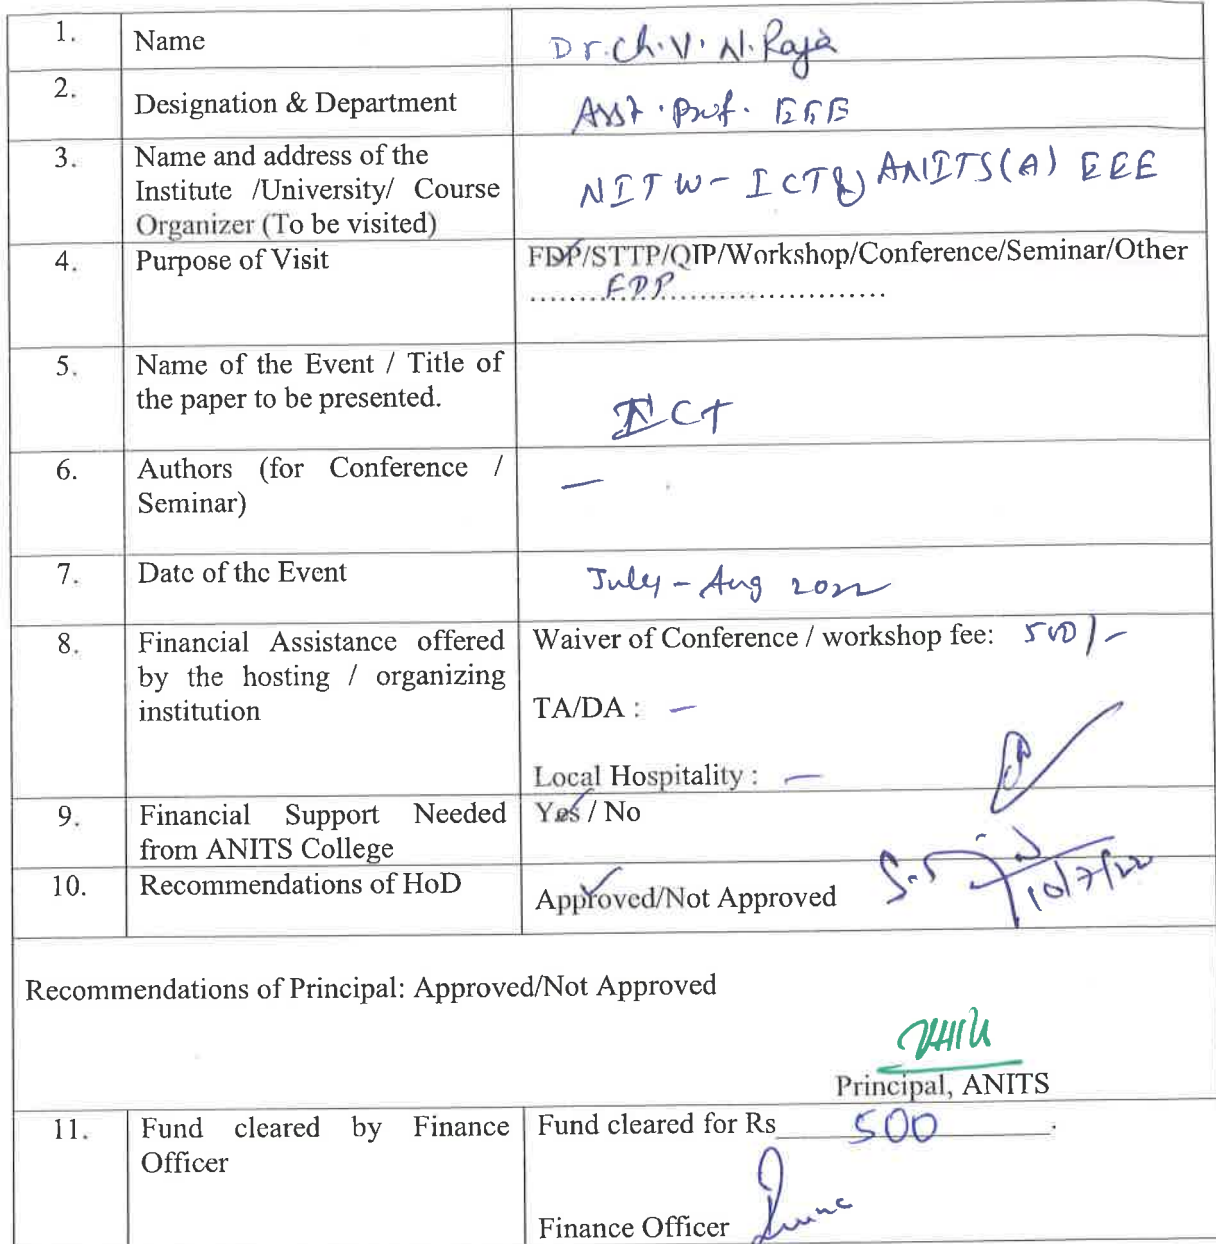 1. Name Dr. Ch. V. N. Raja
2. Designation & Department Asst. Prof. EEE
3. Name and address of the
Institute /University/ Course
Organizer (To be visited)
NITW- ICT & ANITS(A) EEE
4. Purpose of Visit FDP/STTP/QIP/Workshop/Conference/Seminar/Other
........FDP............................
5. Name of the Event / Title of
the paper to be presented.
ICT
6. Authors (for Conference /
Seminar)
—
7. Date of the Event July - Aug 2022
8. Financial Assistance offered
by the hosting / organizing
institution
Waiver of Conference / workshop fee: 500/-
TA/DA : —
Local Hospitality : —
9. Financial Support Needed
from ANITS College
Yes / No
10. Recommendations of HoD Approved/Not Approved
10/7/22
Recommendations of Principal: Approved/Not Approved
Principal, ANITS
11. Fund cleared by Finance
Officer
Fund cleared for Rs 500.
Finance Officer